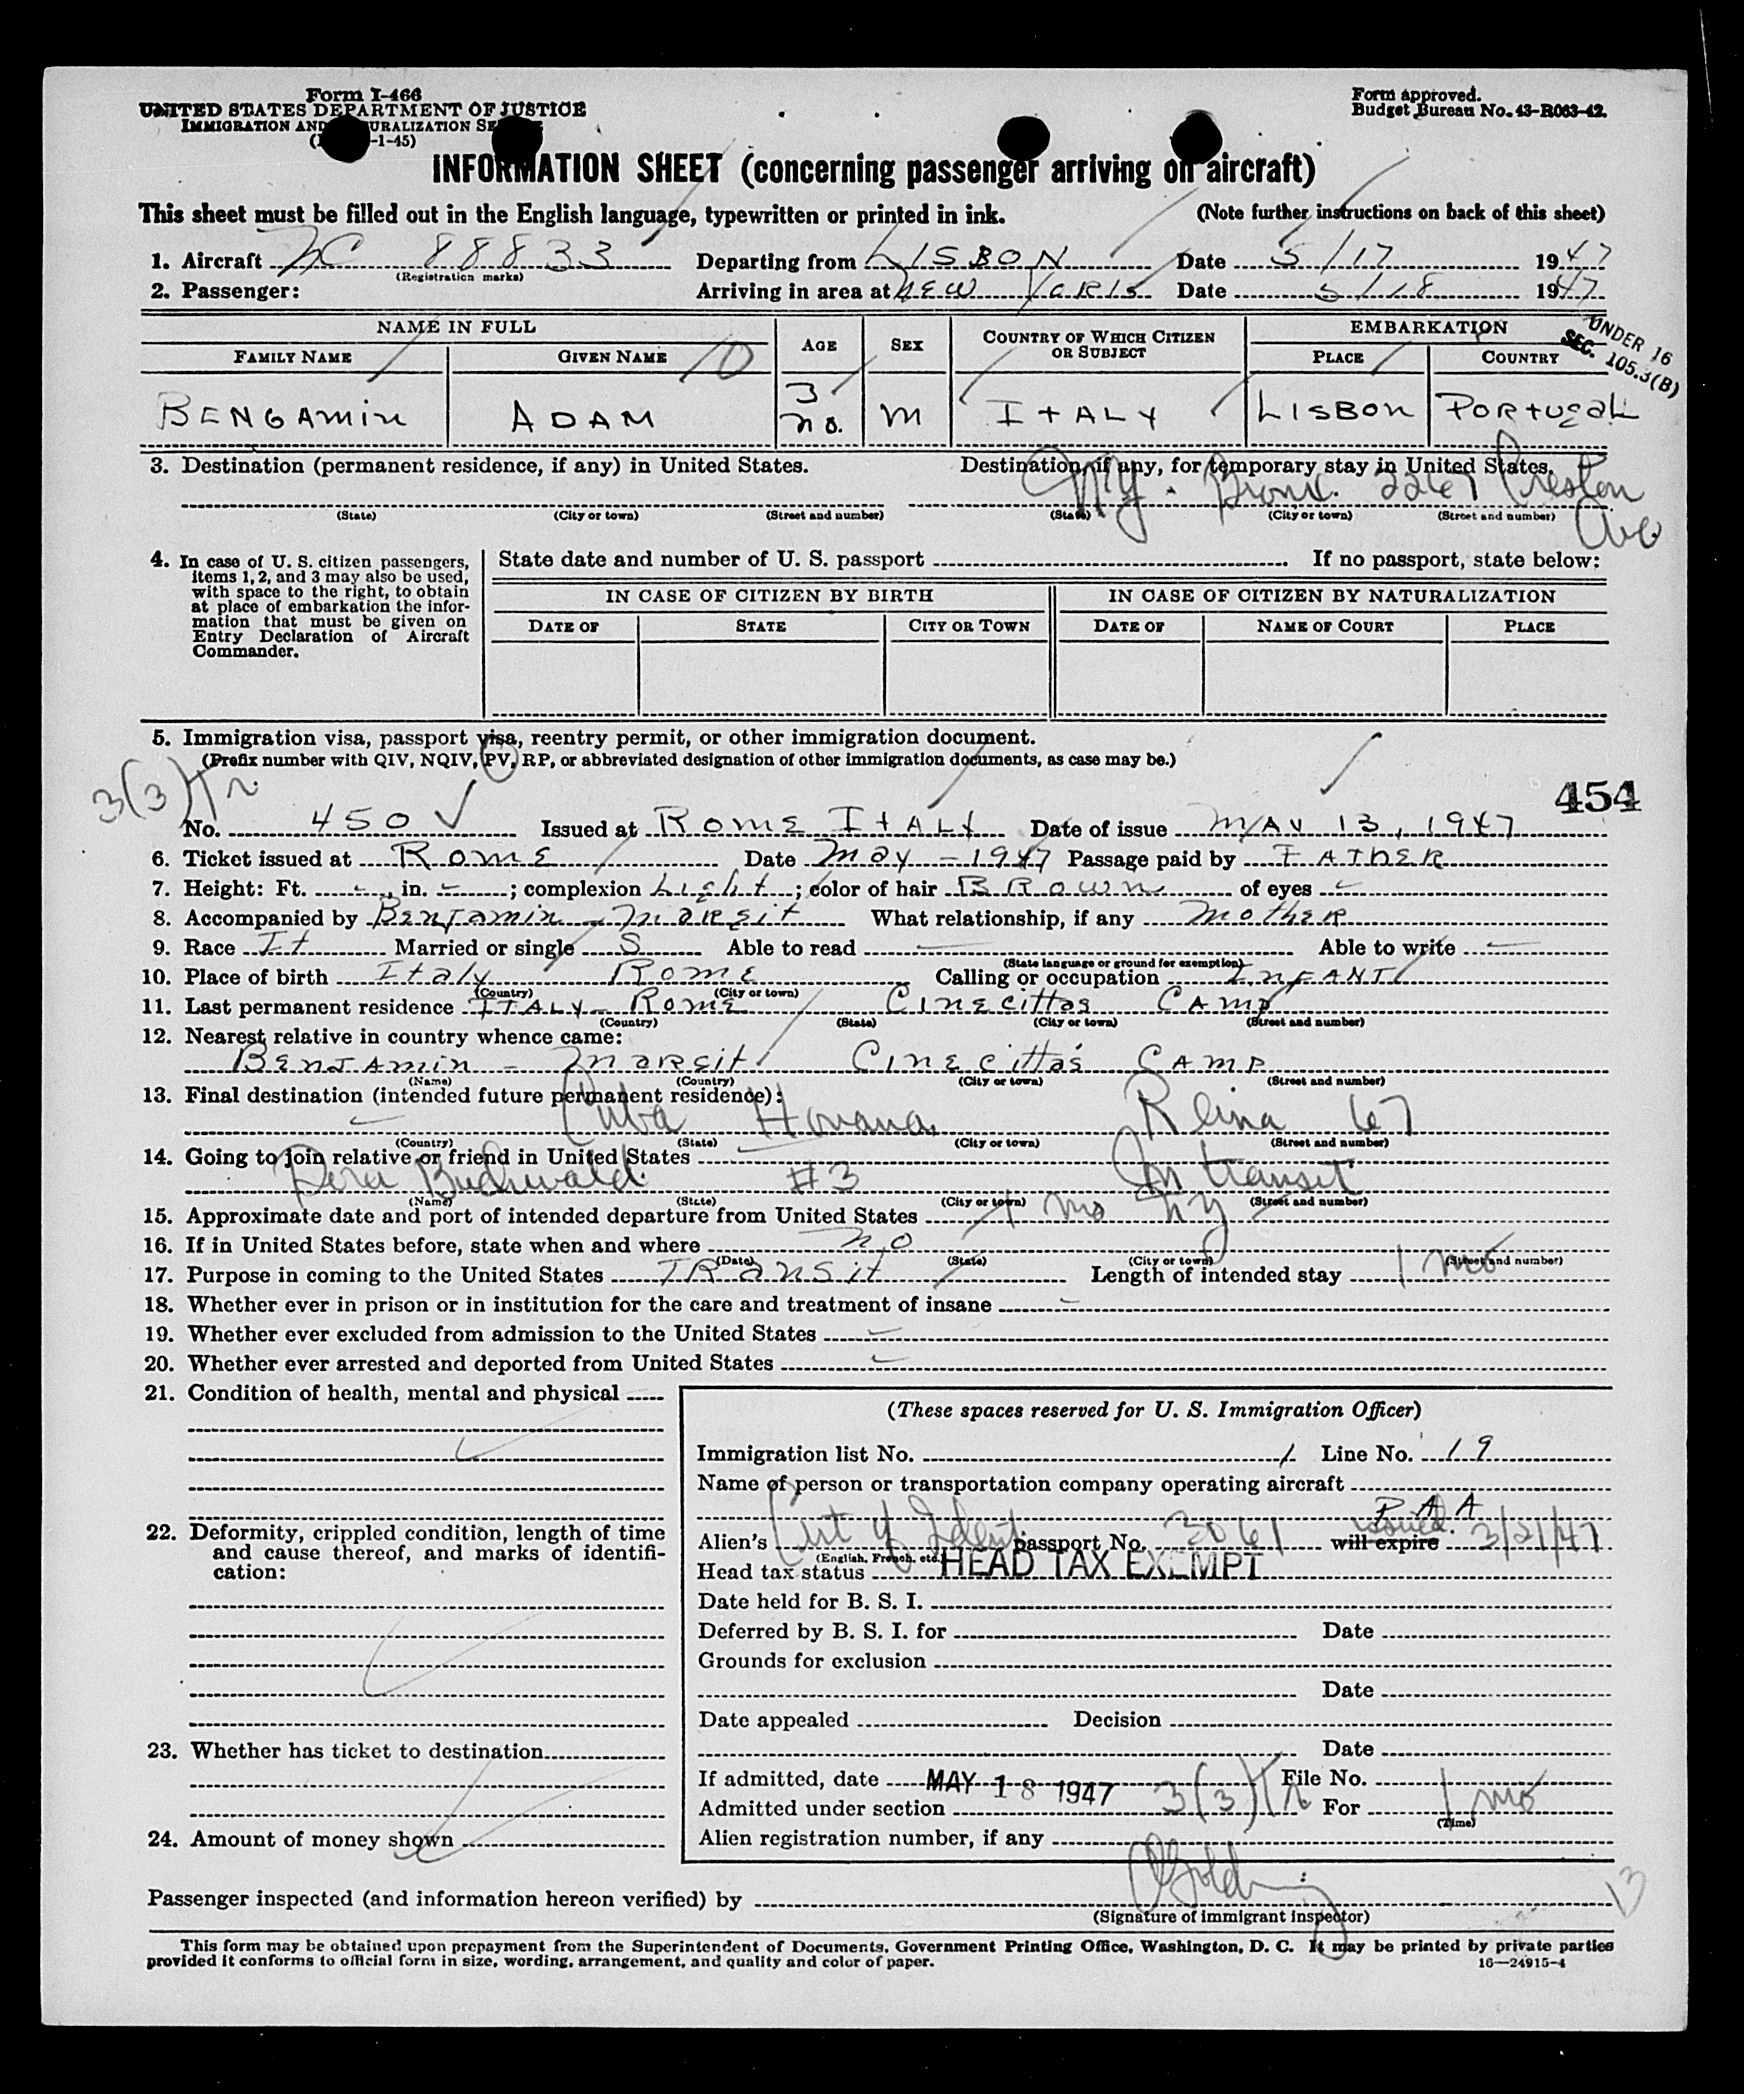 Form I-466
UNITED STATES DEPARTMENT OF JUSTICE
IMMIGRATION AND NATURALIZATION SE
-1-45)
Form approved.
Budget Bureau No. 43-R063-42.
INFORMATION SHEET (concerning passenger arriving on aircraft)
This sheet must be filled out in the English language, typewritten or printed in ink. (Note further instructions on back of this sheet)
1. Aircraft NC 88833 Departing from LISBON Date 5/17 1947
(Registration marks)
2. Passenger: Arriving in area at NEW YORK Date 5/18 1947
NAME IN FULL
FAMILY NAME GIVEN NAME 10 AGE SEX COUNTRY OF WHICH CITIZEN OR SUBJECT EMBARKATION
PLACE COUNTRY
UNDER 16
SEC. 105.3(B)
BENGAMIN ADAM 3 mo. M ITALY LISBON PORTUGAL
3. Destination (permanent residence, if any) in United States. Destination, if any, for temporary stay in United States.
NY. Bronx. 2267 Creston Ave
(State) (City or town) (Street and number) (State) (City or town) (Street and number)
4. In case of U. S. citizen passengers, items 1, 2, and 3 may also be used, with space to the right, to obtain at place of embarkation the information that must be given on Entry Declaration of Aircraft Commander.
State date and number of U. S. passport If no passport, state below:
IN CASE OF CITIZEN BY BIRTH IN CASE OF CITIZEN BY NATURALIZATION
DATE OF STATE CITY OR TOWN DATE OF NAME OF COURT PLACE
5. Immigration visa, passport visa, reentry permit, or other immigration document.
(Prefix number with QIV, NQIV, PV, RP, or abbreviated designation of other immigration documents, as case may be.)
3(3)Tr. 454
No. 450 V Issued at ROME ITALY Date of issue MAY 13, 1947
6. Ticket issued at ROME Date MAY - 1947 Passage paid by FATHER
7. Height: Ft. , in. ; complexion Light ; color of hair BROWN of eyes
8. Accompanied by Benjamin - Margit What relationship, if any Mother
9. Race It Married or single S Able to read Able to write
(State language or ground for exemption)
10. Place of birth Italy Rome Calling or occupation INFANT
(Country) (City or town)
11. Last permanent residence ITALY - ROME Cinecittas CAMP
(Country) (State) (City or town) (Street and number)
12. Nearest relative in country whence came:
BENJAMIN - MARGIT Cinecitta's CAMP
(Name) (Country) (City or town) (Street and number)
13. Final destination (intended future permanent residence):
Cuba Havana Reina 67
(Country) (State) (City or town) (Street and number)
14. Going to join relative or friend in United States
Buchwald #3 In transit
(Name) (State) (City or town) (Street and number)
15. Approximate date and port of intended departure from United States 1 mo NY
16. If in United States before, state when and where NO
(Date) (State) (City or town) (Street and number)
17. Purpose in coming to the United States TRANSIT Length of intended stay 1 mo
18. Whether ever in prison or in institution for the care and treatment of insane
19. Whether ever excluded from admission to the United States
20. Whether ever arrested and deported from United States
21. Condition of health, mental and physical
22. Deformity, crippled condition, length of time and cause thereof, and marks of identification:
23. Whether has ticket to destination
24. Amount of money shown
(These spaces reserved for U. S. Immigration Officer)
Immigration list No. 1 Line No. 19
Name of person or transportation company operating aircraft
P A A
Alien's Cert of Ident passport No. 3061 will expire issued. 3/21/47
(English, French, etc.)
Head tax status HEAD TAX EXEMPT
Date held for B. S. I.
Deferred by B. S. I. for Date
Grounds for exclusion
Date
Date appealed Decision
Date
If admitted, date MAY 18 1947 File No.
Admitted under section 3(3)Tr For 1 mo
(Time)
Alien registration number, if any
Passenger inspected (and information hereon verified) by
(Signature of immigrant inspector)
13
This form may be obtained upon prepayment from the Superintendent of Documents, Government Printing Office, Washington, D. C. It may be printed by private parties
provided it conforms to official form in size, wording, arrangement, and quality and color of paper. 16—24915-4